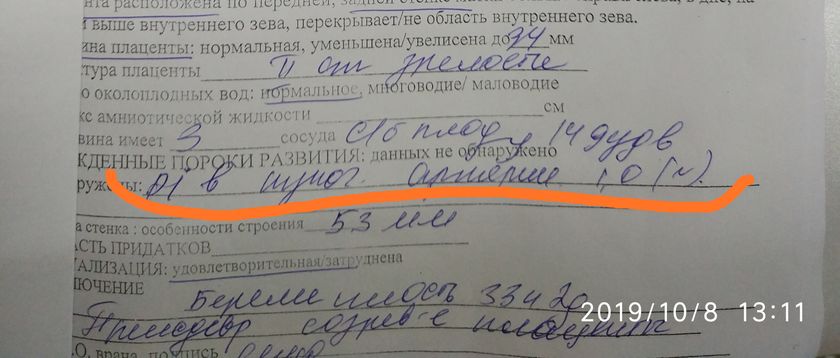 нта расположена по передней, задней стенке матки
выше внутреннего зева, перекрывает/не область внутреннего зева.
ина плаценты: нормальная, уменьшена/увеличена до 34 мм
тура плаценты II ст зрелости
о околоплодных вод: нормальное, многоводие/ маловодие
кс амниотической жидкости см
вина имеет 3 сосуда плод 14
ЖДЕННЫЕ ПОРОКИ РАЗВИТИЯ: данных не обнаружено
ружены: в пупоч. артерии 1,0 (N).
а стенка : особенности строения 53 мм
АСТЬ ПРИДАТКОВ
АЛИЗАЦИЯ: удовлетворительная/затруднена
ЛЮЧЕНИЕ
Беременность 33
2019/10/8 13:11
созрев-е плаценты
.О. врача, подпись